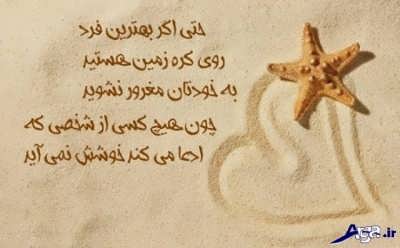 حتی اگر بهترین فرد
روی کره زمین هستید
به خودتان مغرور نشوید
چون هیچ کسی از شخصی که
ادعا می کند خوشش نمی آید
Aga.ir